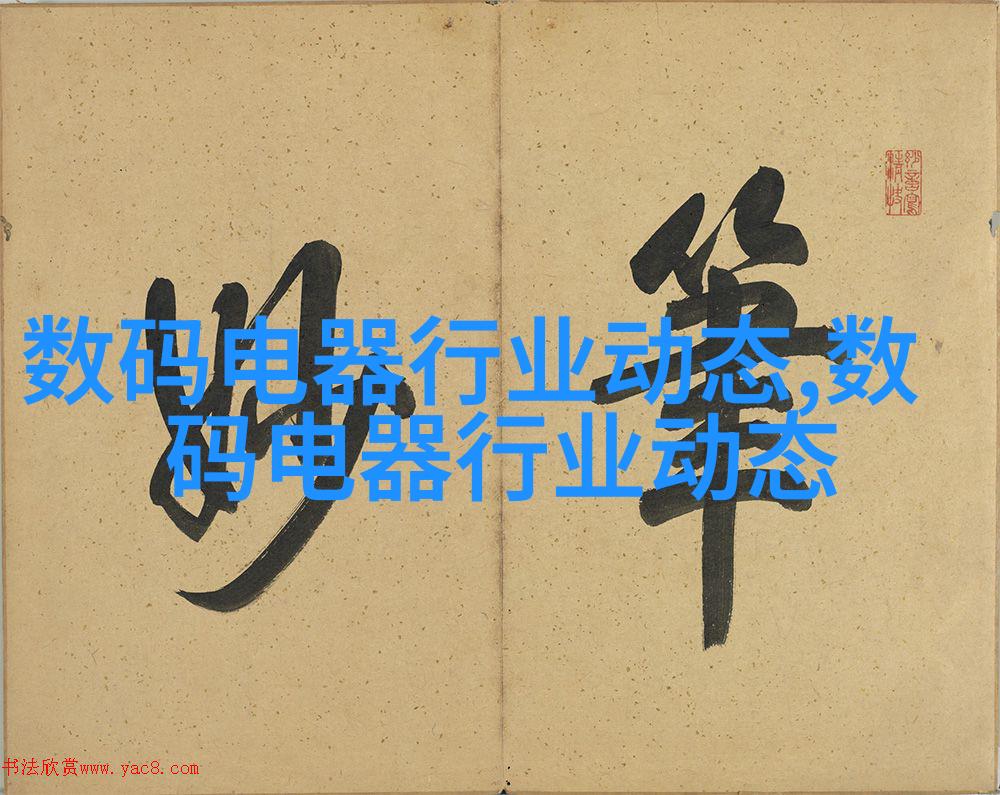 数码电器行业动态,数
码电器行业动态
筆
妙
书法欣赏www.yac8.com